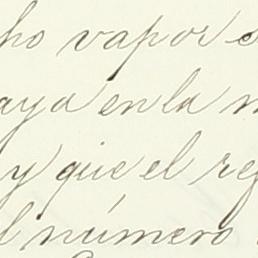 ho vapor
aya en la
y que el reg
l número